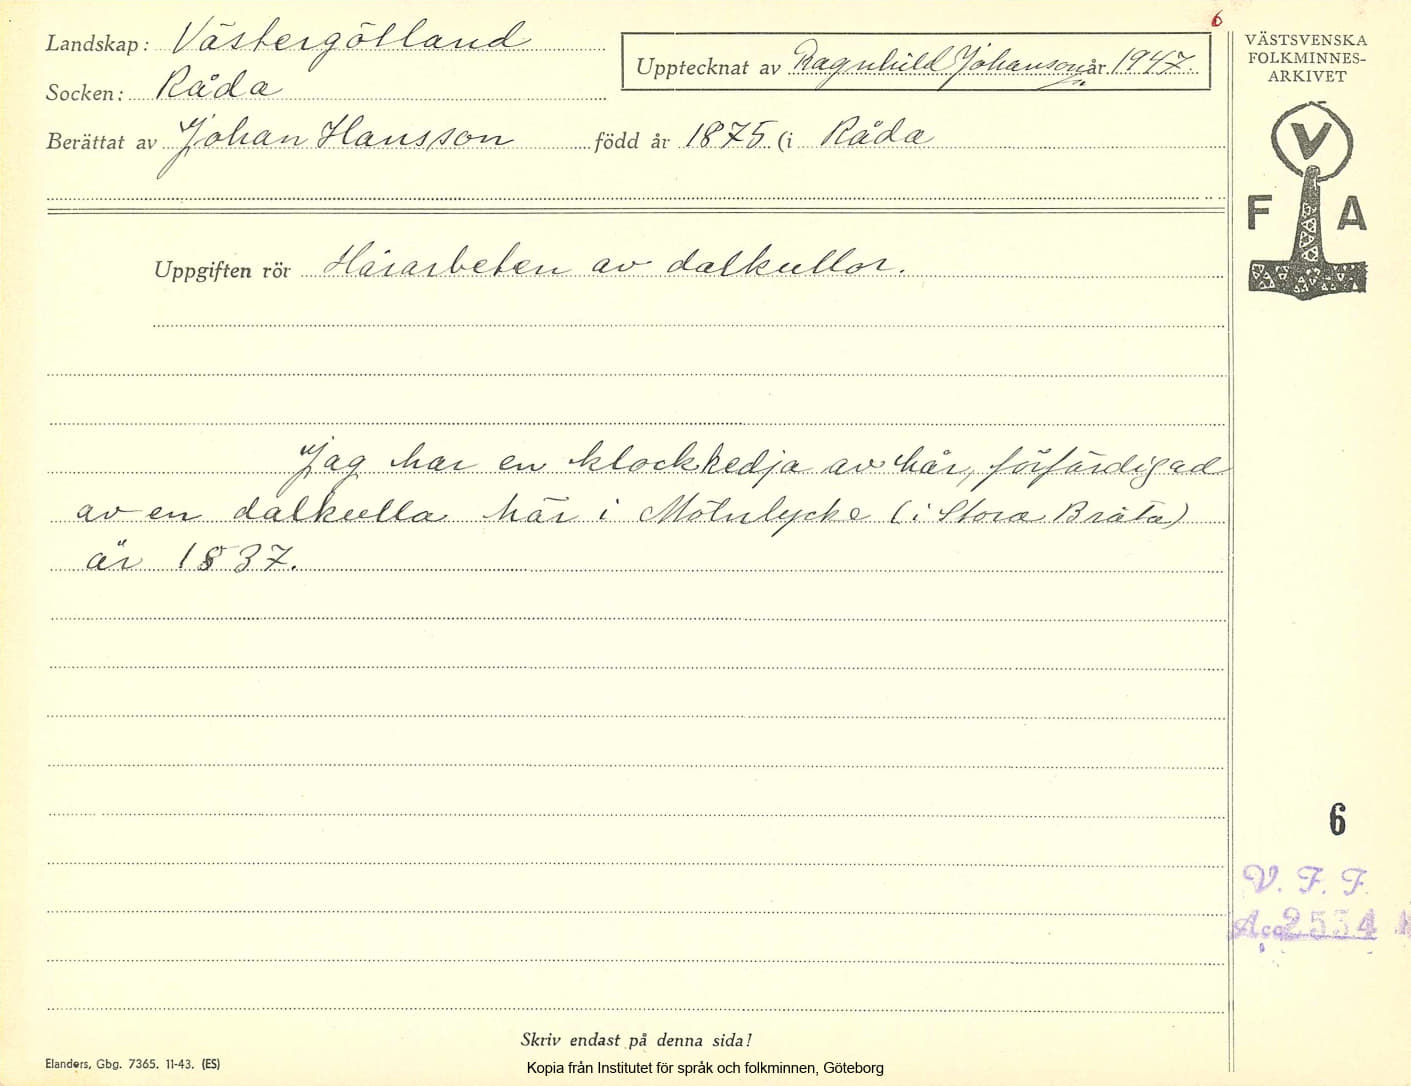 6
Landskap: Västergötland
Socken: Råda
Upptecknat av Ragnhild Johansson år 1947.
Berättat av Johan Hansson född år 1875 (i Råda
VÄSTSVENSKA
FOLKMINNES-
ARKIVET
V
F A
Uppgiften rör Hårarbeten av dalkullor.
Jag har en klockkedja av hår, förfärdigad
av en dalkulla här i Mölnlycke (i Stora Bråta)
år 1837.
6
V. F. F.
Acc 2534
Skriv endast på denna sida!
Elanders, Gbg. 7365. 11-43. (ES)
Kopia från Institutet för språk och folkminnen, Göteborg